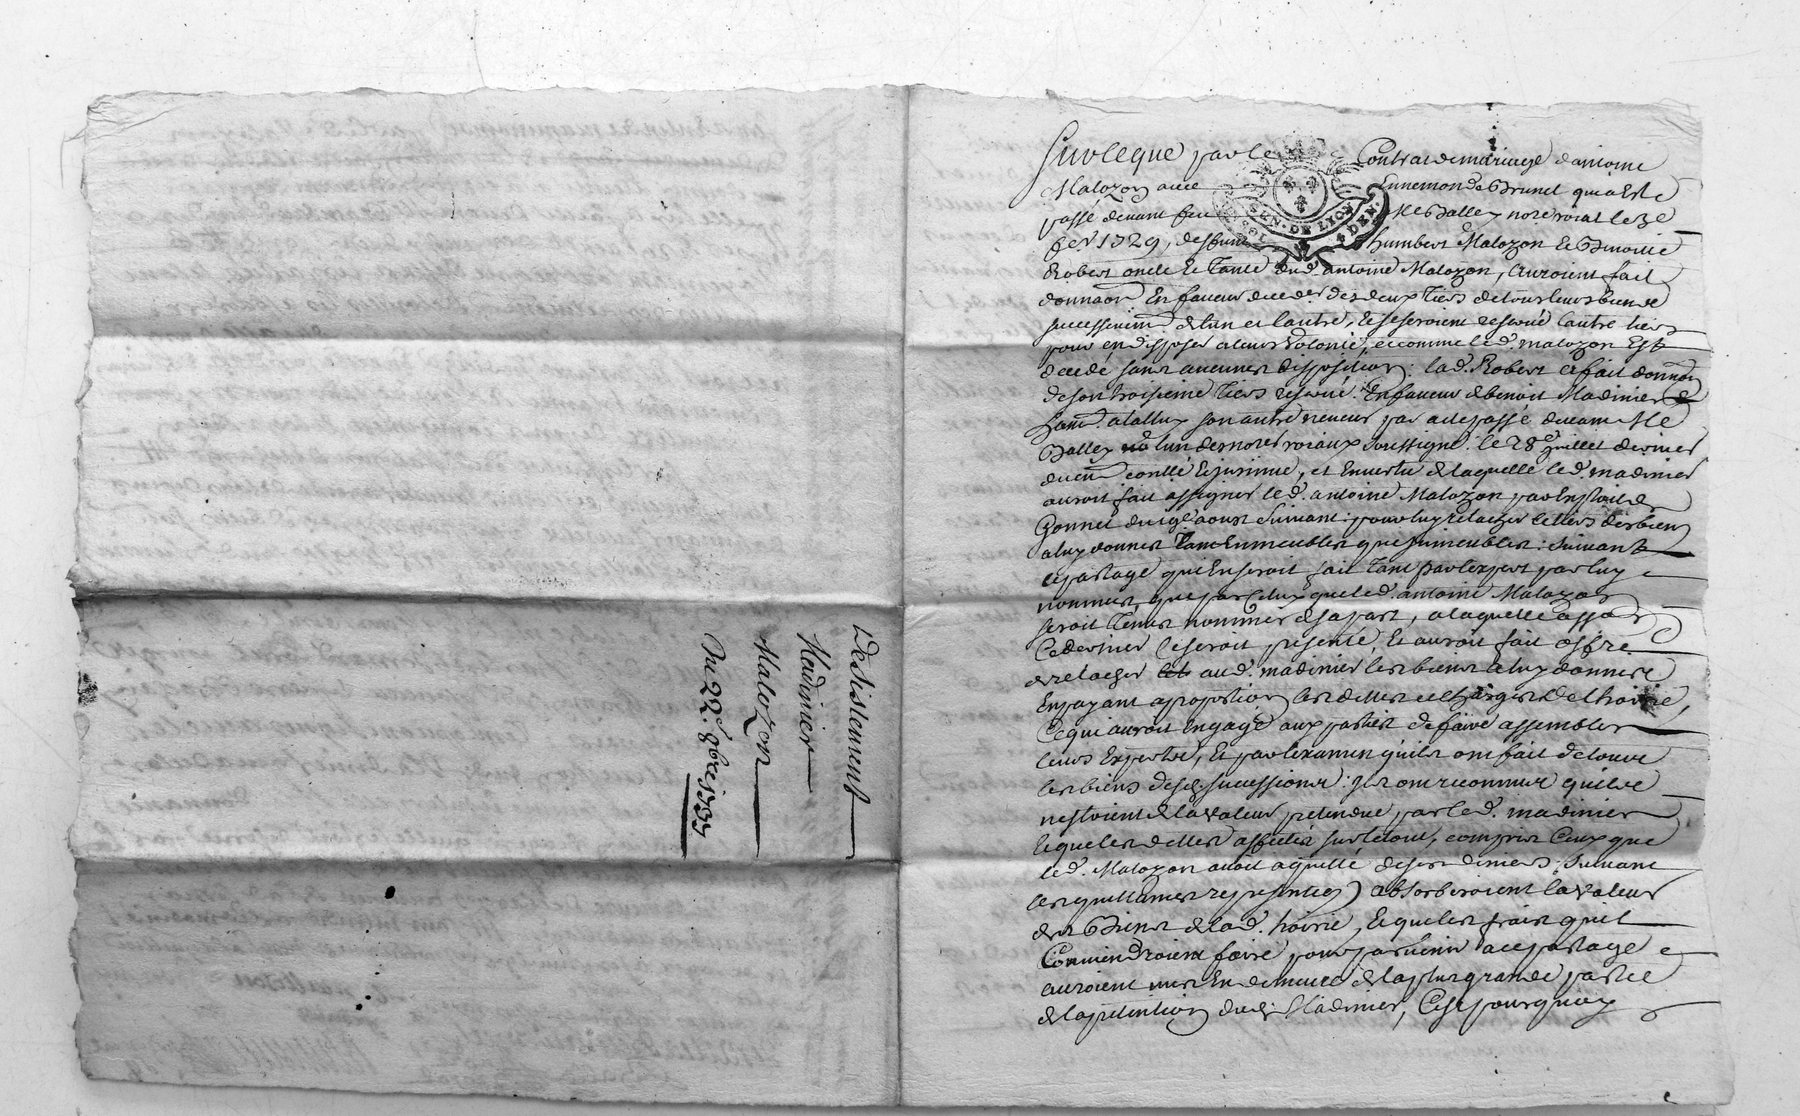 Desistement
Madinier
Malozon
Du 22e. 9bre 1735
Sur ce que par le Contrat de mariage d'antoine
Malozon avec Ennemonde Brunet qui a Esté
passé devant feu Me Balley nore roial le 3e
fev 1729, deffunt humbert Malozon Et Benoite
Robert oncle Et Tante dud. antoine Malozon, auroient fait
donnaon En faveur des deux Tiers de tous leurs biens
successivemt de l'un et l'autre, Et se seroient reservé l'autre tiers
pour en disposer a leurs volonté, et comme led. malozon Est
decedé sans aucunes disposition: lad. Robert a fait donnaon
de son troisieme Tiers reservé: En faveur de benoit Madinier
son autre neveu par acte passé devant Me
Balley l'un des nores roiaux soussigné: le 28e juillet dernier
duemt conllé Et jnsinué, et En vertu de laquelle led. madinier
auroit fait assigner led. antoine Malozon par Exploit de
Gonnet du aoust Suivant: pour luy relacher le tiers des biens
a luy donnés Tant En meubles que jmmeubles: suivant
le partage qui En seroit fait Tant par l'expert par luy
nommer, que par Celuy que led. antoine Malozon
seroit Tenu nommer de sa part, a laquelle assaon
Ce dernier se seroit presenté, Et auroit fait offre
de relacher aud. madinier les biens a luy donnés
En payant a proportion les dettes et charges de l'hoirie,
Ce qui auroit Engagé aux parties de faire assembler
leurs Experts, Et par l'examen qu'ils ont fait de tous
les biens desd. successions: jls ont reconnu qu'ils
n'estoient de la valeur pretendue par led. madinier
Et que les dettes affectés sur le tout, compris Ceux que
led. Malozon avoit aquitté de ses deniers: suivant
les quittances representées) absorberoient la valeur
des Biens de lad. hoirie, Et que les frais qu'il
Conviendroient faire pour parvenir a ce partage
auroient mis En demeure de la plus grande partie
de la pretention dud. Madinier, C'est pourquoy
GEN. DE LYON